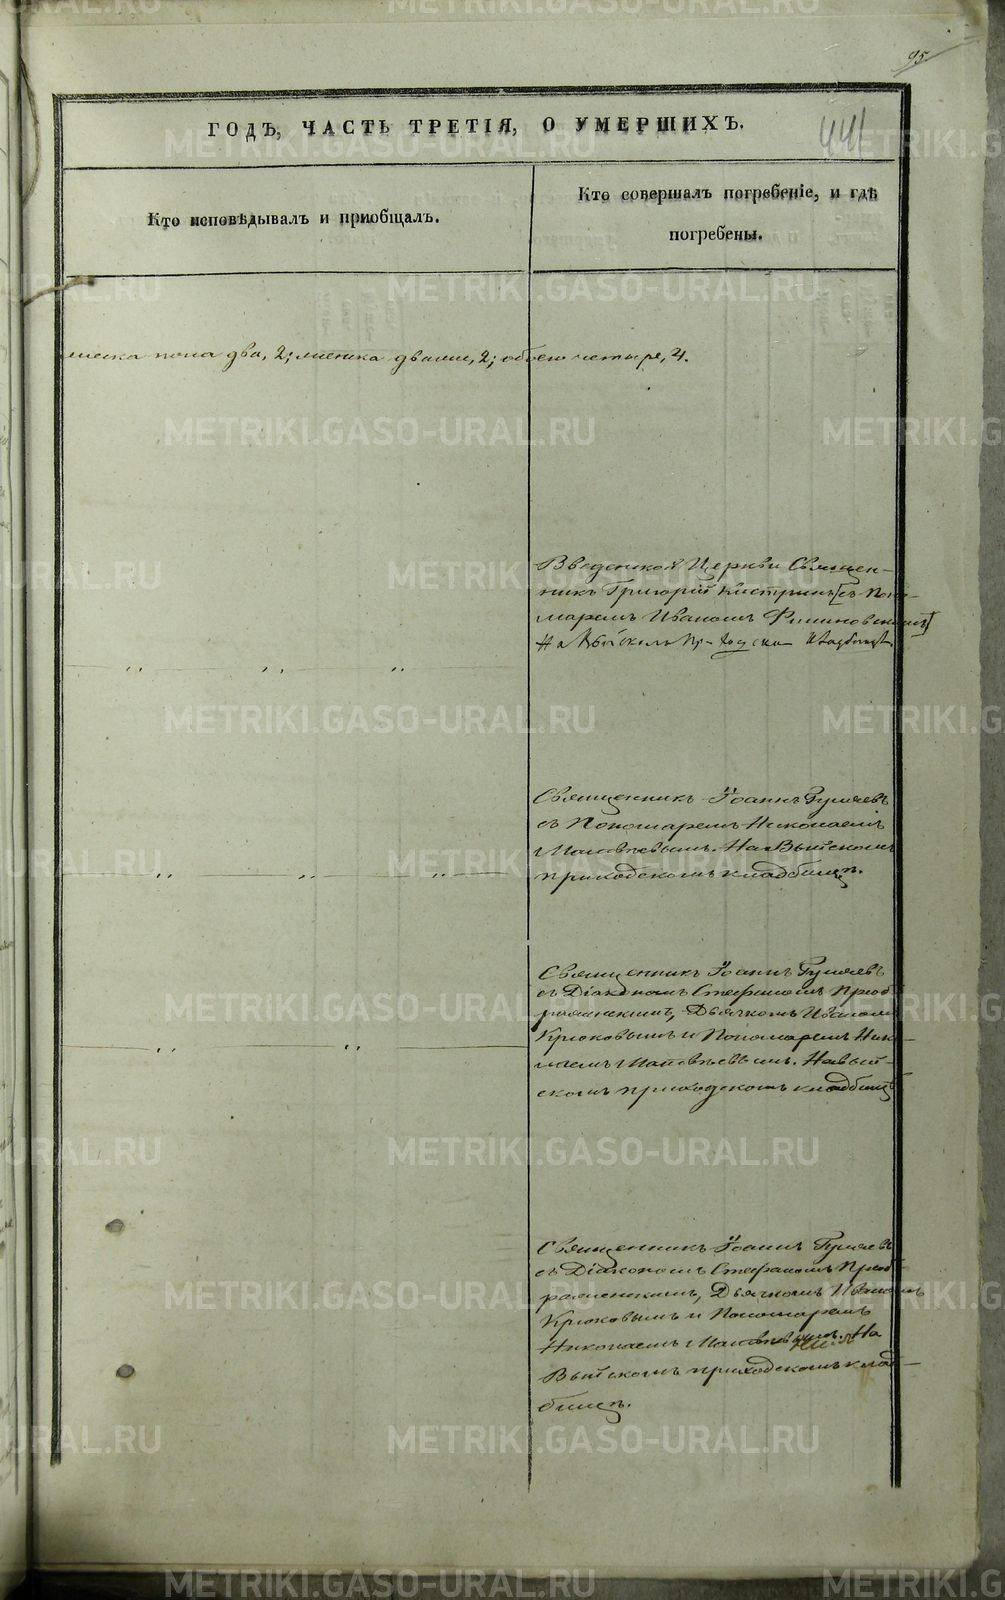 95
ГОДЪ, ЧАСТЬ ТРЕТІЯ, О УМЕРШИХЪ.
441
Кто исповѣдывалъ и пріобщалъ.
Кто совершалъ погребеніе, и гдѣ
погребены.
пола два, 2; женска двѣ, 2; обоего четыре, 4.
Введенской Церкви Священ-
никъ Григорій съ Поно-
маремъ Иваномъ
На Выйскомъ Приходском Кладбищѣ.
Священникъ Іоаннъ Гуляевъ
съ Пономаремъ Николаемъ
Матвѣевымъ. На Выйскомъ
приходскомъ кладбищѣ.
Священникъ Іоаннъ Гуляевъ
съ Діакономъ Стефаномъ Преоб-
раженскимъ, Дьячкомъ Иваномъ
Крюковымъ и Пономаремъ Нико-
лаемъ Матвѣевымъ. На Вый-
скомъ приходскомъ кладбищѣ
Священникъ Іоаннъ Гуляевъ
съ Діакономъ Стефаномъ Преоб-
раженскимъ, Дьячкомъ Иваномъ
Крюковымъ и Пономаремъ
Николаемъ Матвѣевымъ. На
Выйскомъ приходскомъ клад-
бищѣ.
METRIKI.GASO-URAL.RU